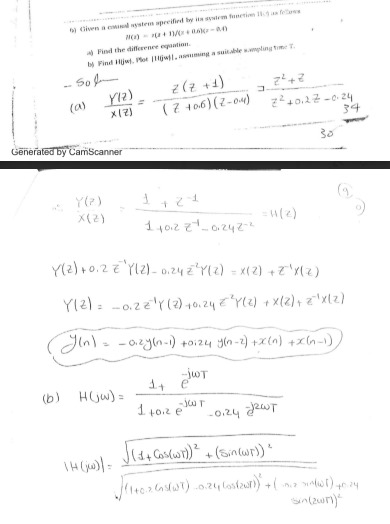 6) Given a causal system specified by its system function H(z) as follows
H(z) = z(z + 1)/(z + 0.6)(z - 0.4)
a) Find the difference equation.
b) Find H(jw), Plot |H(jw)|, assuming a suitable sampling time T.
- Sol
(a) Y(z)/X(z) = z(z+1)/(z+0.6)(z-0.4) = z²+z/z²+0.2z-0.24
34
30
Generated by CamScanner
(9
∴ Y(z)/X(z) = 1+z⁻¹/1+0.2z⁻¹-0.24z⁻² = H(z)
Y(z)+0.2z⁻¹Y(z)-0.24z⁻²Y(z) = X(z)+z⁻¹X(z)
Y(z) = -0.2z⁻¹Y(z)+0.24z⁻²Y(z)+X(z)+z⁻¹X(z)
y(n) = -0.2y(n-1)+0.24y(n-2)+x(n)+x(n-1)
(b) H(jw) = 1+e^-jwT/1+0.2e^-jwT-0.24e^-j2wT
|H(jw)| = √(1+Cos(wT))²+(Sin(wT))²/√(1+0.2Cos(wT)-0.24Cos(2wT))²+(-0.2sin(wT)+0.24
Sin(2wT))²